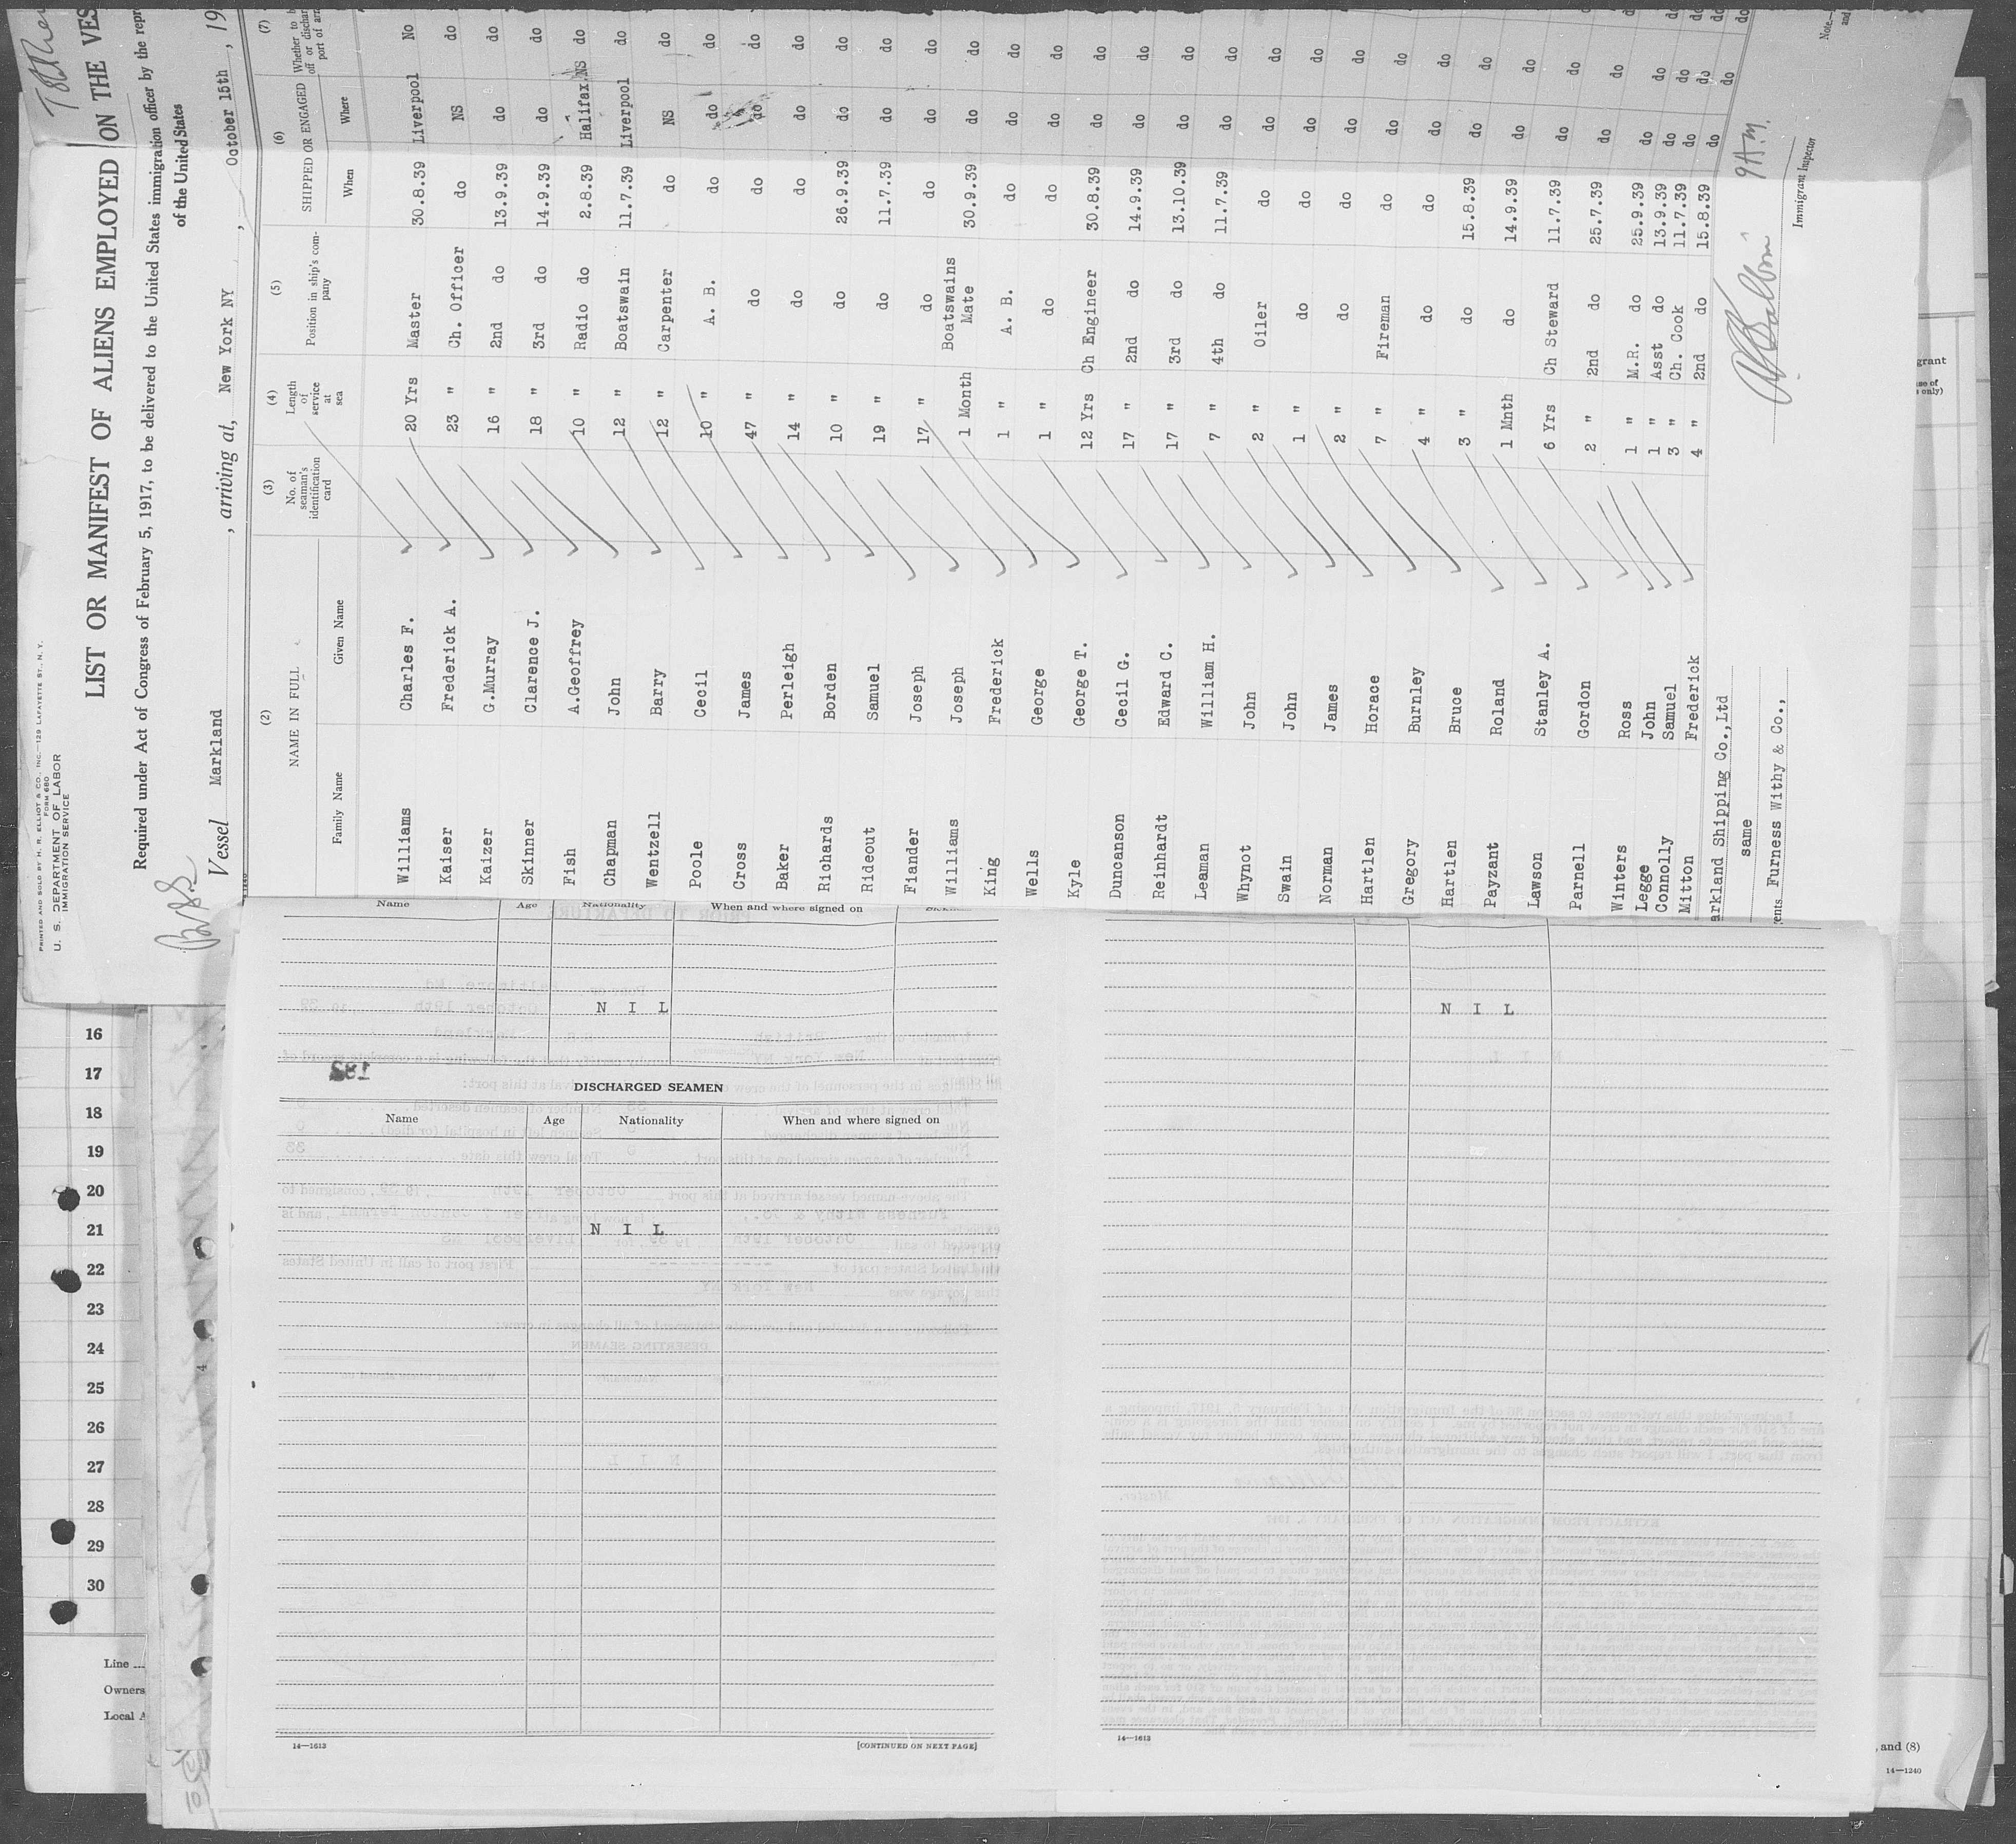 PRINTED AND SOLD BY H. R. ELLIOT & CO., INC.—129 LAFAYETTE ST., N. Y.
FORM 680
U. S. DEPARTMENT OF LABOR
IMMIGRATION SERVICE
LIST OR MANIFEST OF ALIENS EMPLOYED ON THE VES
Required under Act of Congress of February 5, 1917, to be delivered to the United States immigration officer by the repr
of the United States
Vessel Markland , arriving at, New York NY , October 15th , 19
(2) (3) (4) (5) (6) (7)
NAME IN FULL No. of seaman's identification card Length of service at sea Position in ship's company SHIPPED OR ENGAGED Whether to b off or dischar port of arr
Family Name Given Name When Where
Williams Charles F. 20 Yrs Master 30.8.39 Liverpool No
Kaiser Frederick A. 23 " Ch. Officer do NS do
Kaizer G.Murray 16 " 2nd do 13.9.39 do do
Skinner Clarence J. 18 " 3rd do 14.9.39 do do
Fish A.Geoffrey 10 " Radio do 2.8.39 Halifax.NS do
Chapman John 12 " Boatswain 11.7.39 Liverpool do
Wentzell Barry 12 " Carpenter do NS do
Poole Cecil 10 " A. B. do do do
Cross James 47 " do do do do
Baker Perleigh 14 " do do do do
Richards Borden 10 " do 26.9.39 do do
Rideout Samuel 19 " do 11.7.39 do do
Fiander Joseph 17 " do do do do
Williams Joseph 1 Month Boatswains Mate 30.9.39 do do
King Frederick 1 " A. B. do do do
Wells George 1 " do do do do
Kyle George T. 12 Yrs Ch Engineer 30.8.39 do do
Duncanson Cecil G. 17 " 2nd do 14.9.39 do do
Reinhardt Edward C. 17 " 3rd do 13.10.39 do do
Leaman William H. 7 " 4th do 11.7.39 do do
Whynot John 2 " Oiler do do do
Swain John 1 " do do do do
Norman James 2 " do do do do
Hartlen Horace 7 " Fireman do do do
Gregory Burnley 4 " do do do do
Hartlen Bruce 3 " do 15.8.39 do do
Payzant Roland 1 Mnth do 14.9.39 do do
Lawson Stanley A. 6 Yrs Ch Steward 11.7.39 do do
Parnell Gordon 2 " 2nd do 25.7.39 do do
Winters Ross 1 " M.R. do 25.9.39 do do
Legge John 1 " Asst do 13.9.39 do do
Connolly Samuel 3 " Ch. Cook 11.7.39 do do
Mitton Frederick 4 " 2nd do 15.8.39 do do
arkland Shipping Co.,Ltd
same
ents Furness Withy & Co.,
9 A.M.
Immigrant Inspector
Note.—
and
grant
use of
s only)
Name Age Nationality When and where signed on
N I L
DISCHARGED SEAMEN
Name Age Nationality When and where signed on
N I L
14—1613
[CONTINUED ON NEXT PAGE]
N I L
14—1613
16
17
18
19
20
21
22
23
24
25
26
27
28
29
30
4
Line
Owners
Local A
, and (8)
14—1240